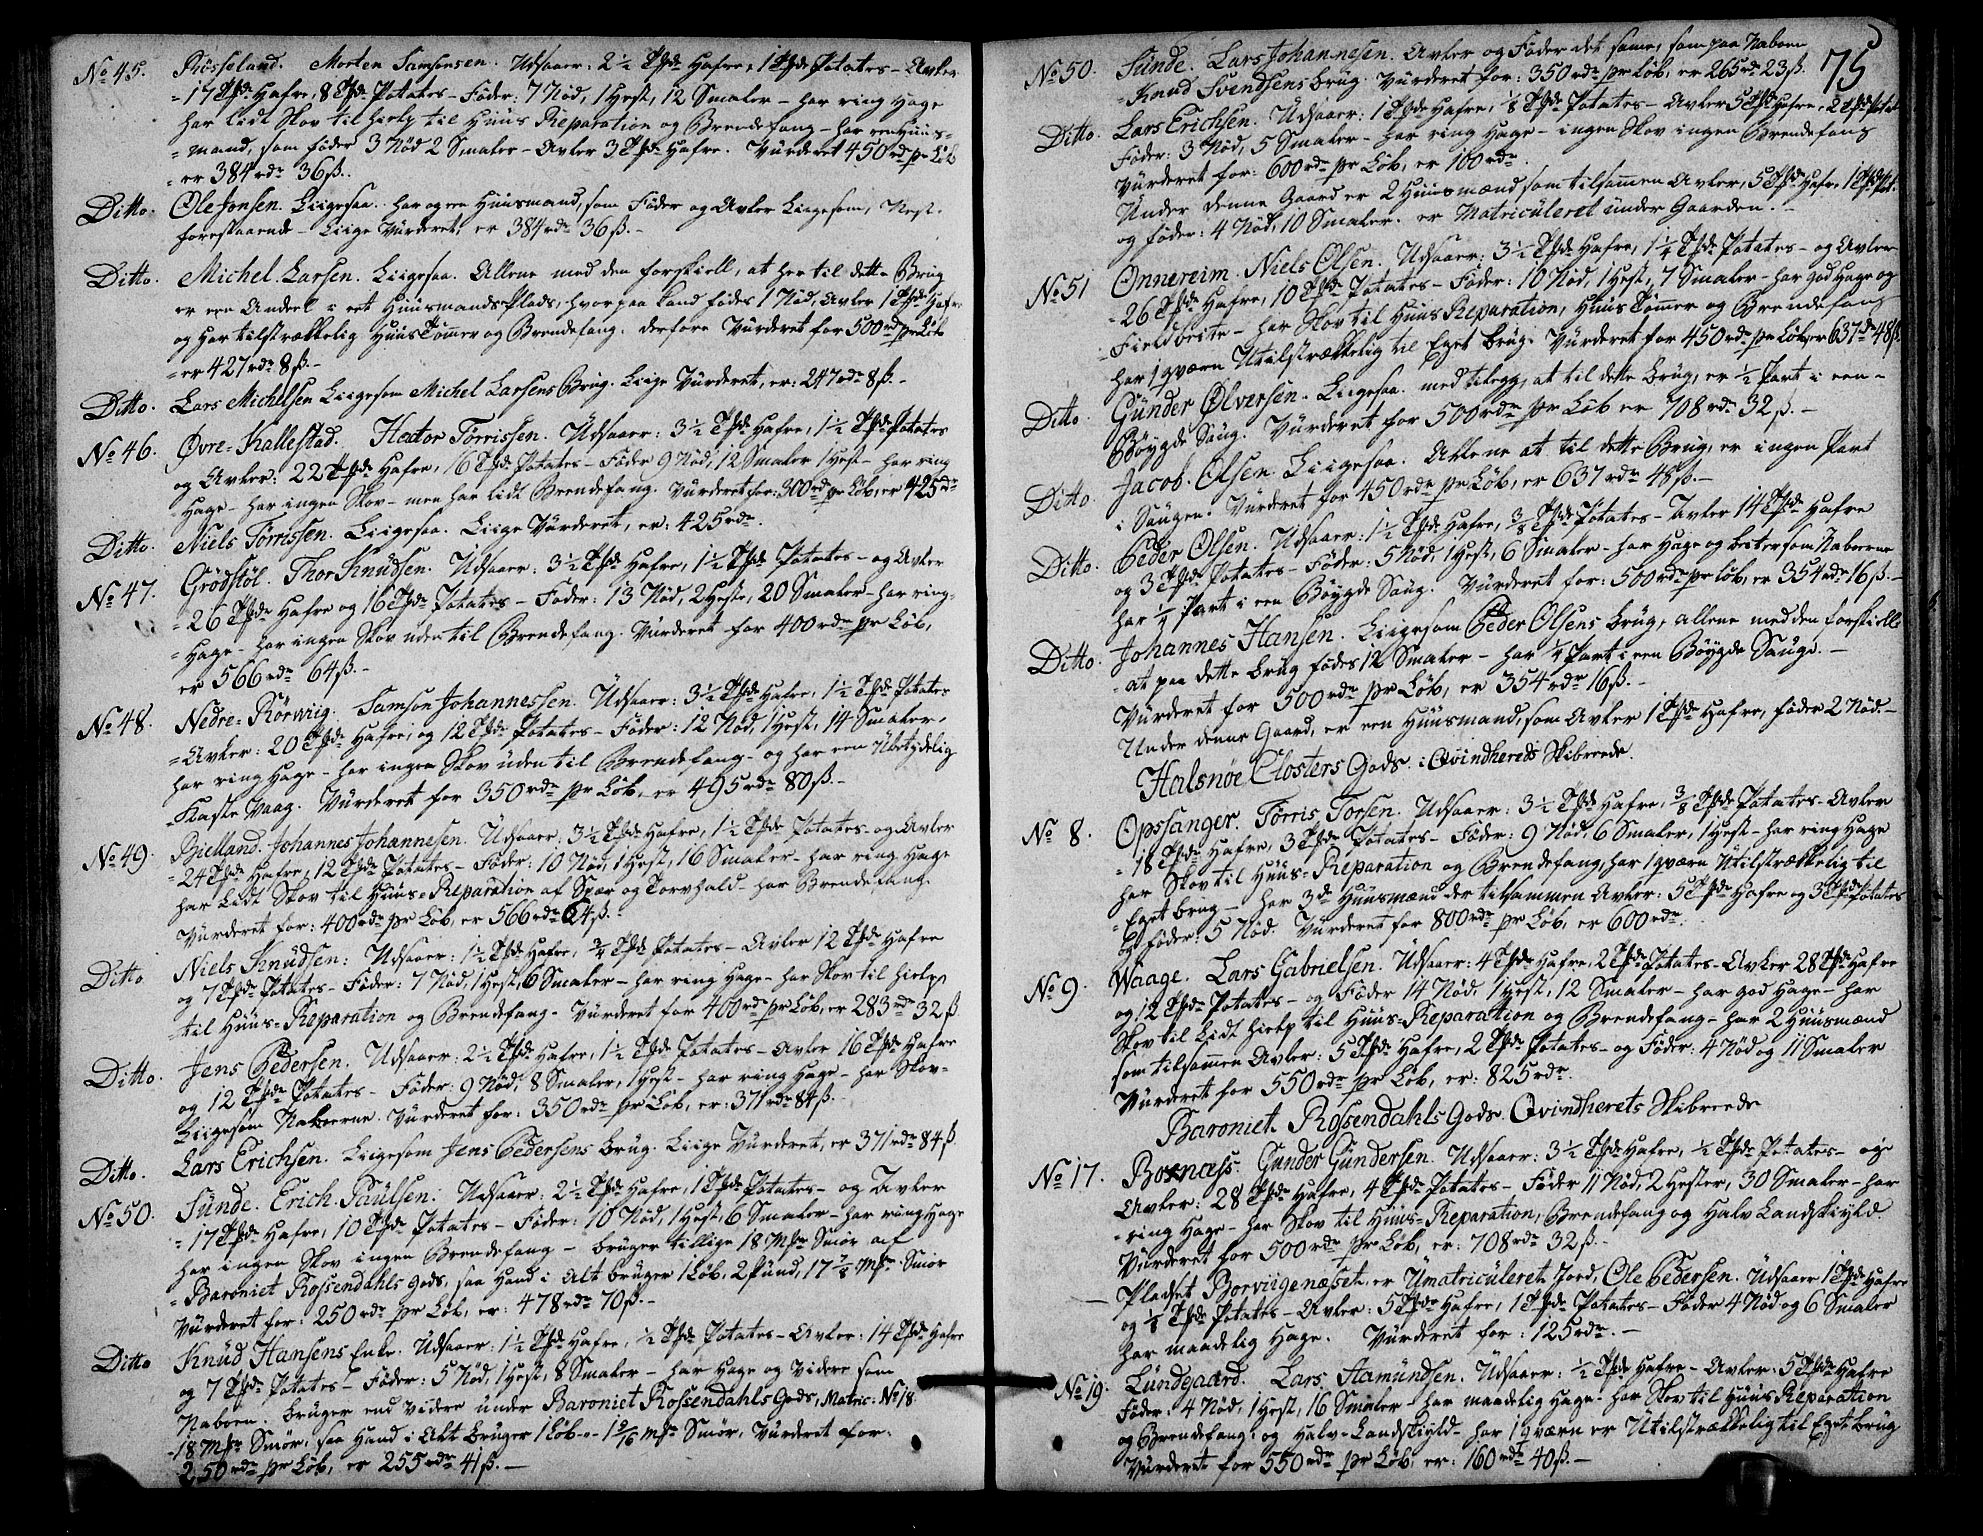 No 45. Røsseland. Morten Samsonsen. Udsaaer: 2½ Tdr Hafre, 1 Tdr Potates - Avler
17 Tdr Hafre, 8 Tdr Potates - Føder: 7 Nød, 1 Hest, 12 Smaler - har ring Hage
har lidt Skov til hielp til Huus Reparation og Brendefang - har een Huus-
mand, som føder 3 Nød 2 Smaler - Avler 3 Tdr Hafre. Vürderet 450 rdr pr Løb
er 384 rdr 36 ß.
Ditto. Ole Jonsen. Liigesaa. har og een Huusmand, som Føder og Avler Liigesom, Nest-
forestaaende - Liige Vürderet, er 384 rdr 36 ß. -
Ditto. Michel Larsen. Liigesaa. Allene med den forskiell, at her til dette Brug
er een Andeel i eet Huusmands Plads, hvorpaa kand fødes 1 Nød, Avler 1 Tdr Hafre
og har tilstrækkelig Huus Tømmer og Brendefang. derfore Vürderet for 500 rdr pr Løb
er 427 rdr 8 ß. -
Ditto. Lars Michelsen Liigesom Michel Larsens Brug. Liige Vürderet, er: 247 rdr 8 ß. -
No 46. Øvre-Kallestad. Hector Tørrissen. Udsaaer: 3½ Tdr Hafre, 1½ Tdr Potates
og Avler: 22 Tdr Hafre, 16 Tdr Potates - Føder 9 Nød, 12 Smaler 1 Hest - har ring
Hage - har ingen Skov - men har lidt Brendefang. Vürderet for: 300 rdr pr Løb, er 425 rdr
Ditto. Niels Tørrissen. Liigesaa. Liige Vürderet, er: 425 rdr.
No 47. Grødstøl. Thor Knudsen. Udsaaer: 3½ Tdr Hafre, 1½ Tdr Potates - og Avler
26 Tdr Hafre og 16 Tdr Potates - Føder: 13 Nød, 2 Heste, 20 Smaler - har ring-
Hage - har ingen Skov uden til Brendefang. Vürderet for 400 rdr pr Løb,
er 566 rdr 64 ß. -
No 48. Nedre-Rørviig. Samson Johannessen. Udsaaer: 3½ Tdr Hafre, 1½ Tdr Potates
Avler: 20 Tdr Hafre, og 12 Tdr Potates - Føder: 12 Nød, 1 Hest, 14 Smaler,
har ring Hage - har ingen Skov uden til Brendefang - og har een Ubetydelig
Kaste Vaag. Vürderet for 350 rdr pr Løb, er 495 rdr 80 ß. -
No 49. Bielland. Johannes Johannesen. Udsaaer: 3½ Tdr Hafre, 1½ Tdr Potates - og Avler
24 Tdr Hafre, 12 Tdr Potates - Føder: 10 Nød, 1 Hest, 16 Smaler - har ring Hage
har Lidt Skov til Huus-Reparation af Spær og Torvhald - har Brendefang.
Vürderet for: 400 rdr pr Løb, er 566 rdr 64 ß. -
Ditto Niels Knudsen: Udsaaer: 1½ Tdr Hafre, ¾ Tdr Potates - Avler 12 Tdr Hafre
og 7 Tdr Potates - Føder: 7 Nød, 1 Hest, 6 Smaler - har ring Hage - har Skov til hielp
til Huus-Reparation og Brendefang - Vürderet for 400 rdr pr Løb, er 283 rdr 32 ß.
Ditto. Jens Pedersen. Udsaaer: 2½ Tdr Hafre, 1½ Tdr Potates - Avler 16 Tdr Hafre
og 12 Tdr Potates - Føder: 9 Nød, 8 Smaler, 1 Hest - har ring Hage - har Skov-
Liigesom Naboerne. Vürderet for: 350 rdr pr Løb, er: 371 rdr 84 ß. -
Ditto. Lars Erichsen. Liigesom Jens Pedersens Brug. Liige Vürderet, er 371 rdr 84 ß.
No 50. Sunde. Erich Paulsen: Udsaaer: 2½ Tdr Hafre, 1 Tdr Potates - og Avler
17 Tdr Hafre, 10 Tdr Potates - Føder: 10 Nød, 1 Hest, 6 Smaler - har ring Hage
har ingen Skov ingen Brendefang - bruger tillige 18 Mrk Smør af
Baroniet Rossendahls Gods, saa Hand i Alt bruger 1 Løb, 2 Pund, 17 ⅞ Mrk Smør
Vürderet for: 250 rdr pr Løb, er: 478 rdr 70 ß. -
Ditto Knud Hansens Enke. Udsaaer: 1½ Tdr Hafre, ½ Tdr Potates - Avler: 14 Tdr Hafre
og 7 Tdr Potates - Føder: 5 Nød, 1 Hest, 8 Smaler - har Hage og videre som
Naboen. bruger end videre under Baroniet Rossendahls Gods, Matric: No 18.
18 Mrk Smør, saa Hand i Alt bruger 1 Løb - Mrk Smør, Vürderet for:
250 rdr pr Løb, er 255 rdr 41 ß. -
75
No 50. Sunde. Lars Johannesen. Avler og Føder det same, som paa Naboen
Knud Svendsens brug. Vürderet for: 350 rdr pr Løb, er 265 rdr 23 ß.
Ditto. Lars Erichsen. Udsaaer: 1 Tdr Hafre, ⅛ Tdr Potates - Avler 5 Tdr Hafre, 2 Tdr Potat.
Føder: 3 Nød, 5 Smaler - har ring Hage - ingen Skov ingen Brendefang
Vürderet for: 600 rdr pr Løb, er 100 rdr.
Under denne Gaard er 2 Huusmænd som tilsamen Avler, 5 Tdr Hafre, 1 Tdr Pot.
og føder: 4 Nød, 10 Smaler. er Matriculeret under Gaarden. -
No 51 Onnereim. Niels Olsen. Udsaaer: 3½ Tdr Hafre, 1¼ Tdr Potates - og Avler
26 Tdr Hafre, 10 Tdr Potates - Føder: 10 Nød, 1 Hest, 7 Smaler - har god Hage og
Fieldbeite - har Skov til Huus Reparation, Huus Tømer og Brendefang
har 1 qværn Utilstrækkelig til Eget brug. Vürderet for 450 rdr pr Løb, er 637 rdr 48 ß.
Ditto Gunder Olversen. Liigesaa. med tilegg, at til dette brug, er ½ Part i een -
Bøygde Saug. Vürderet for 500 rdr pr Løb er 708 rdr 32 ß. -
Ditto. Jacob Olsen. Liigesaa. Allene at til dette Brug, er ingen Part
i Saugen. Vürderet for 450 rdr pr Løb, er 637 rdr 48 ß. -
Ditto. Peder Olsen. Udsaaer: 1½ Tdr Hafre, ⅜ Tdr Potates - Avler 14 Tdr Hafre
og 3 Tdr Potates - Føder: 5 Nød, 1 Hest, 6 Smaler - har Hage og beiter som Naboerne
har ¼ Part i een Bøygde Saug. Vürderet for: 500 rdr pr Løb, er 354 rdr 16 ß. -
Ditto. Johannes Hansen. Liigesom Peder Olsens brug, allene med den forskiell
at paa dette brug fødes 12 Smaler - har ¼ Part i een Bøygde Sauge. -
Vürderet for 500 rdr pr Løb, er 354 rdr 16 ß. -
Under denne Gaard, er een Huusmand, som Avler 1 Tdr Hafre, føder 2 Nød. -
Halsnøe Closters Gods. i Qvindhereds Skibreede.
No 8. Opsanger. Tørris Torsen. Udsaaer: 3½ Tdr Hafre, ⅜ Tdr Potates - Avler
18 Tdr Hafre, 3 Tdr Potates - Føder: 9 Nød, 6 Smaler, 1 Hest - har ring Hage
har Skov til Huus-Reparation og Brendefang, har 1 qværn Utilstrækkelig til
Eget brug - har 3de Huusmænd der tilsammen Avler: 5 Tdr Hafre og 3 Tdr Potates
og føder: 5 Nød. Vürderet for 800 rdr pr Løb, er 600 rdr.
No 9. Waage. Lars Gabrielsen. Udsaaer: 4 Tdr Hafre, 2 Tdr Potates - Avler 28 Tdr Hafre
og 12 Tdr Potates - og Føder 14 Nød, 1 Hest, 12 Smaler - har god Hage - har
Skov til Lidt hielp til Huus-Reparation og Brendefang - har 2 Huusmænd
som tilsamen Avler: 5 Tdr Hafre, 2 Tdr Potates - og Føder: 4 Nød og 11 Smaler
Vürderet for 550 rdr pr Løb, er: 825 rdr.
Baroniet Rossendahls Gods. Qvindherets Skibreede
No 17. Gunder Gundersen. Udsaaer: 3½ Tdr Hafre, ½ Tdr Potates - og
Avler: 28 Tdr Hafre, 4 Tdr Potates - Føder 11 Nød, 2 Hester, 30 Smaler - har
ring Hage - har Skov til Huus-Reparation, Brendefang og Halv Landskyld.
Vürderet for 500 rdr pr Løb, er: 708 rdr 32 ß. -
Pladset Borvügenæset, er Umatriculeret Jord, Ole Pedersen. Udsaaer 1 Tdr Hafre
og ⅛ Tdr Potates - Avler: 5 Tdr Hafre, 1 Tdr Potates - Føder 4 Nød og 6 Smaler
har maadelig Hage. Vürderet for: 125 rdr. -
No 19. Lundgaard. Lars Aamundsen. Udsaaer: ½ Tdr Hafre - Avler: 5 Tdr Hafre
Føder: 4 Nød, 1 Hest, 16 Smaler - har maadelig Hage - har Skov til Huus Reparation
og Brendefang, og Halv-Landskyld - har 1 qværn er Utilstrækkelig til Eget brug
Vürderet for 550 rdr pr Løb, er: 160 rdr 40 ß. -